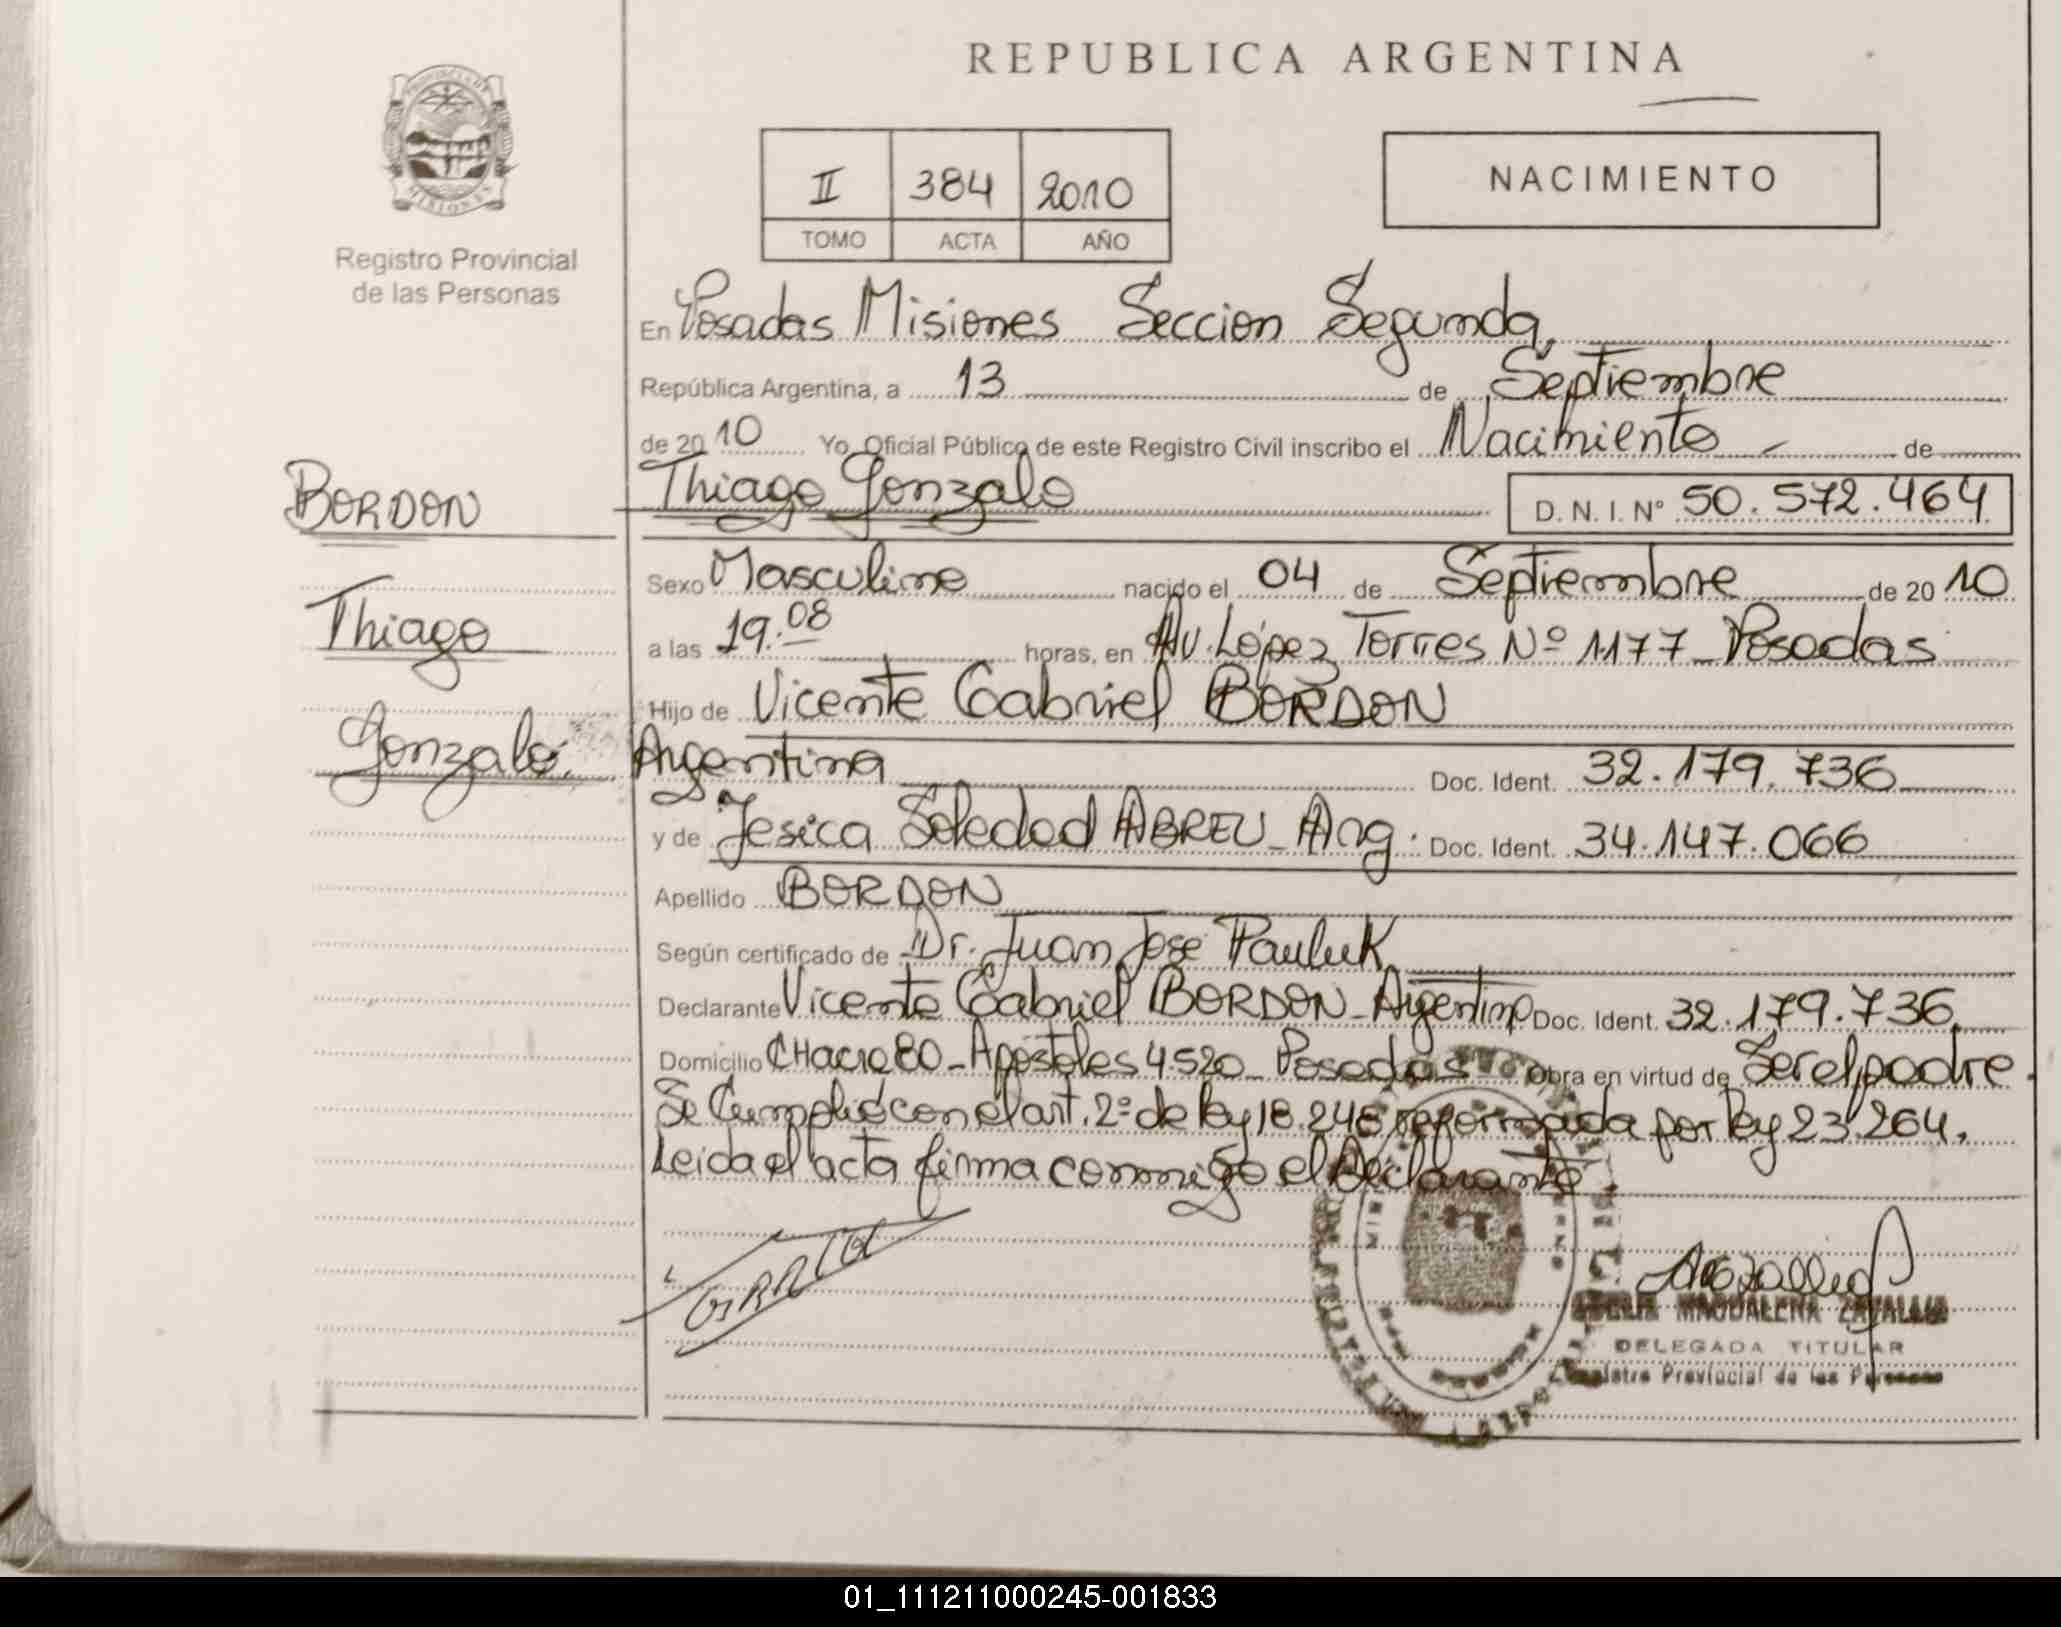 REPUBLICA ARGENTINA
PROVINCIA DE
MISIONES
Registro Provincial
de las Personas
II 384 2010
TOMO ACTA AÑO
NACIMIENTO
En Posadas Misiones Seccion Segunda,
República Argentina, a 13 de Septiembre
de 2010 Yo Oficial Público de este Registro Civil inscribo el Nacimiento de
Thiago Gonzalo D. N. I. Nº 50.572.464
BORDON
Thiago
Gonzalo.
Sexo Masculino nacido el 04 de Septiembre de 2010
a las 19.08 horas, en Av. López Torres Nº 1177 Posadas
Hijo de Vicente Gabriel BORDON
Argentina Doc. Ident. 32.179.736
y de Jesica Soledad ABREU - Arg. Doc. Ident. 34.147.066
Apellido BORDON
Según certificado de Dr. Juan Jose Pauluk
Declarante Vicente Gabriel BORDON - Argentino Doc. Ident. 32.179.736
Domicilio CHacra 80 - Apóstoles 4.520 - Posadas Obra en virtud de Ser el padre.
Se Cumplió con el art. 2º de ley 18.248 reformada por ley 23.264.
Leida el acta firma conmigo el Declarante.
MAGDALENA ZAVALLIA
DELEGADA TITULAR
Registro Provincial de las Personas
01_111211000245-001833